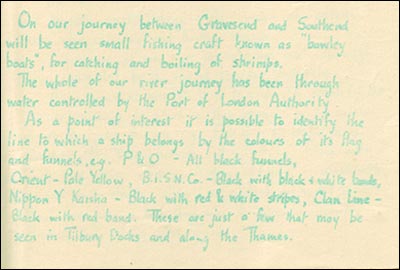 On our journey between Gravesend and Southend
will be seen small fishing craft known as "bawley
boats", for catching and boiling of shrimps.
The whole of our river journey has been through
water controlled by the Port of London Authority
As a point of interest it is possible to identify the
line to which a ship belongs by the colours of its flag
and funnels, e.g. P & O - All black funnels,
Orient - Pale Yellow, B.I.S.N.Co. - Black with black & white bands,
Nippon Y Kaisha - Black with red & white stripes, Clan Line -
Black with red band. These are just a few that may be
seen in Tilbury Docks and along the Thames.